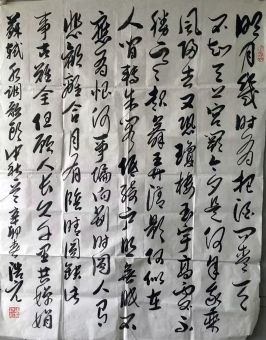 明月幾时有把酒问青天
不知天上宫阙今夕是何年我欲乘
风归去又恐琼楼玉宇高处不
勝寒起舞弄清影何似在
人间转朱阁低绮户照无眠不
應有恨何事偏向别时圆人有
悲歡離合月有陰晴圆缺此
事古難全但願人长久千里共嬋娟
蘇軾水调歌头中秋 辛卯 浩元